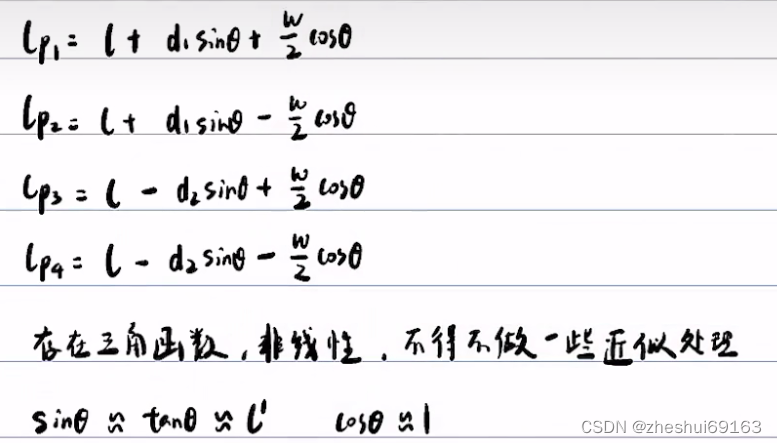 lp₁ = l + d₁sinθ + w/2 cosθ
lp₂ = l + d₁sinθ - w/2 cosθ
lp₃ = l - d₂sinθ + w/2 cosθ
lp₄ = l - d₂sinθ - w/2 cosθ
存在三角函数,非线性,不得不做一些近似处理
sinθ ≈ tanθ ≈ l' cosθ ≈ 1
CSDN @zheshui69163